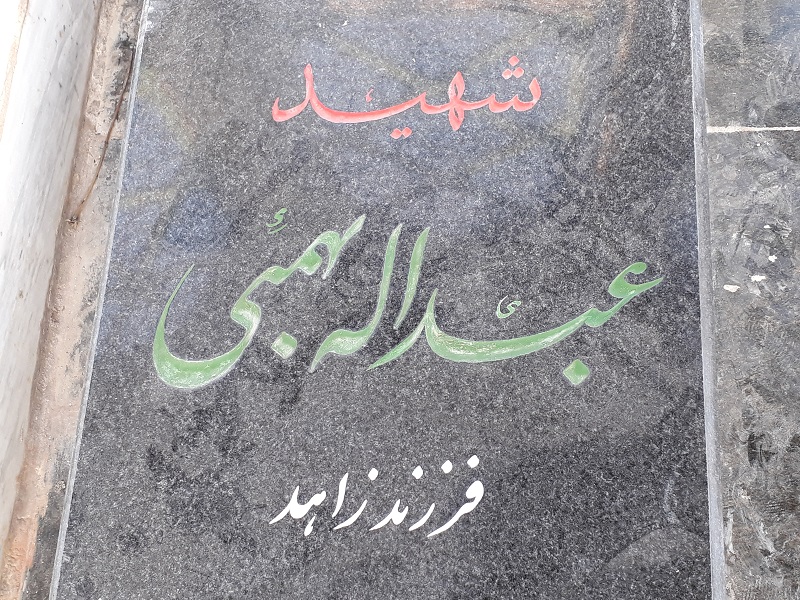 شهید
عبداله بهمئی
فرزند زاهد